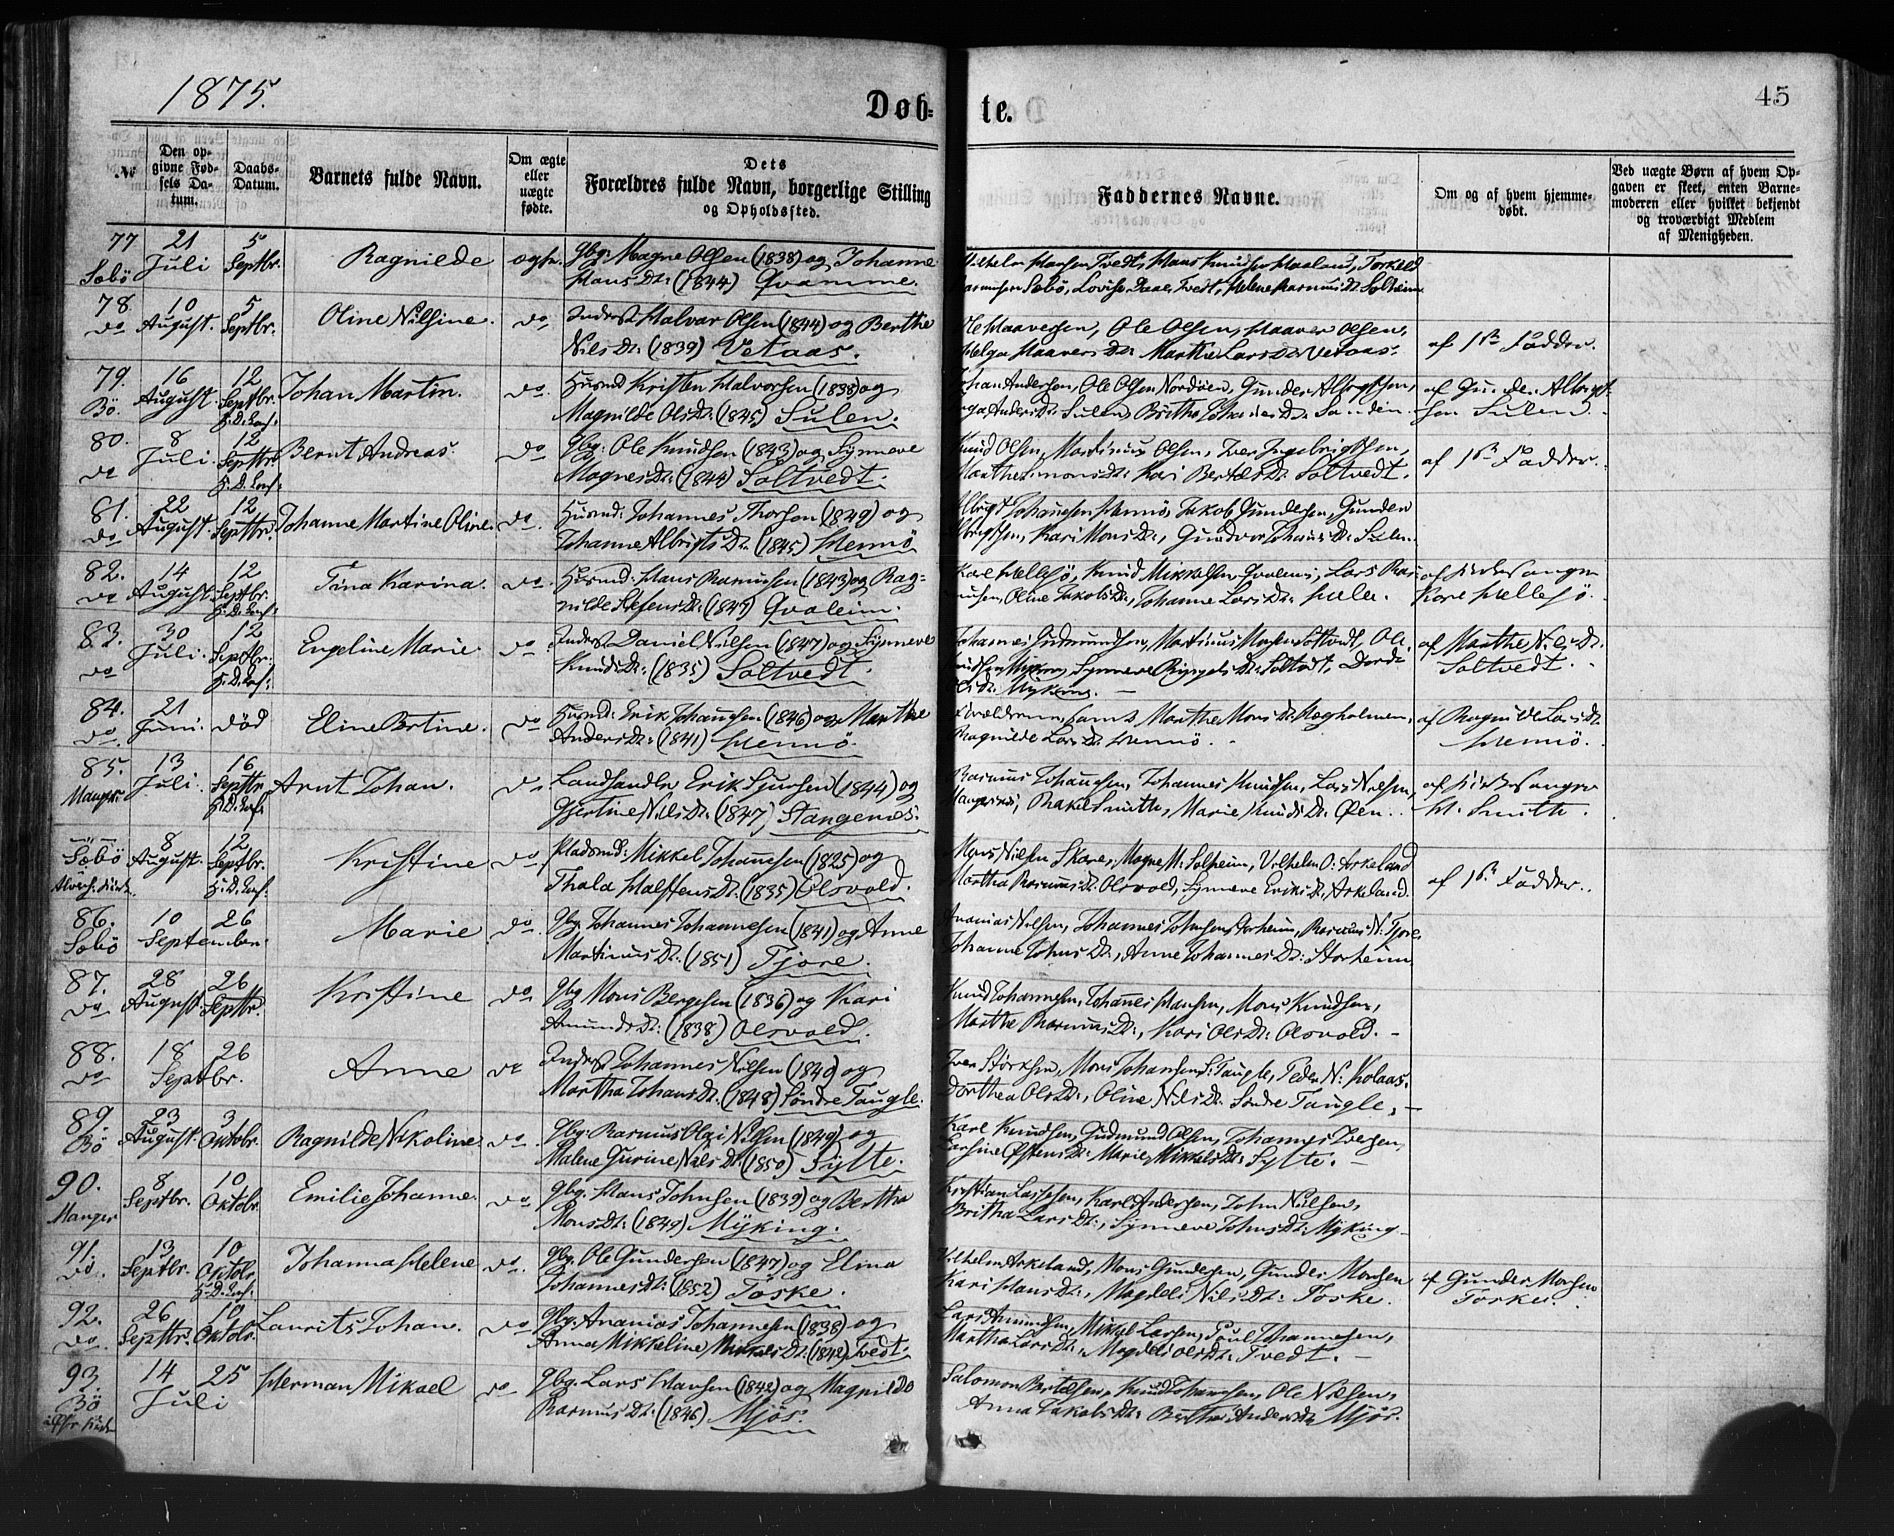 1875.
Døb- te.
45
№
Den op-
givne Fød-
sels Da-
tum.
Daabs-
Datum.
Barnets fulde Navn.
Om ægte
eller
uægte
fødte.
Dets
Forældres fulde Navn, borgerlige Stilling
og Opholdssted.
Faddernes Navne.
Om og af hvem hjemme-
døbt.
Ved uægte Børn af hvem Op-
gaven er skeet, enten Barne-
moderen eller hvilket bekjendt
og troværdigt Medlem
af Menigheden.
77 Sæbö 21 Juli 5 Septbr. Ragnilde ægte.
Gbg: Magne Olsen (1838) og Johanne
Hans Dt: (1844) Qvamme.
Vilhelm Hansen Tvedt, Hans Knudsen Haaland, Torkeld
Rasmusen Sæbö, Lovise Daae Tvedt, Helene Rasmus Dt: Solheim.
78 do 10 August. 5 Septbr. Oline Nilsine. do
Inderst Halvar Olsen (1844) og Berthe
Nils Dt: (1839) Vetaas.
Ole Haaversen, Ole Olsen, Haaver Olsen,
Helga Haavers Dt: Marthe Lars Dt: Vetaas.
af 1ste Fadder.
79. Bö. 16 August. 12 Septbr. H.D. Conf: Johan Martin. do
Husmd Kristen Halvorsen (1838) og
Magnilde Ols Dt: (1845) Sulen.
Johan Andersen, Ole Olsen Nordöen, Gunder Albrigtsen,
Anders Dt: Sulen, Britha Johannes Dt: Sanden.
af Gunder Albrigt-
sen Sulen.
80. do 8 Juli. 12 Septbr. H.D. Conf: Bernt Andreas. do
Gbg: Ole Knudsen (1843) og Synneve
Magnes Dt: (1844) Soltvedt.
Knud Olsen, Martinus Olsen, Iver Ingebrigtsen,
Marthe Simons Dt: Kari Bertels Dt: Soltvedt.
af 1ste Fadder.
81. do 22 August. 12 Septbr. Johanne Martine Oline. do.
Husmd: Johannes Thorsen (1849) og
Johanne Albrigts Dt: (1845) Hennö
Albrigt Johannesen Hennö, Jakob Gundersen, Gunder
Albrigtsen, Kari Mons Dt:, Gundvor Johans Dt: Sulen.
82. do 14 August. 12 Septbr. H.D. Conf: Tina Karina. do.
Husmd: Hans Rasmusen (1843) og Rag-
nilde Stefens Dt: (1847) Qvaleim.
Karl Hellesö, Knud Mikkelsen Qvaleim, Lars Ras-
musen, Oline Jakobs Dt:, Johanne Lars Dt: Hele.
af Kirkesanger
Karl Hellesö.
83. do 30 Juli. 12 Septbr. H.D. Conf: Engeline Marie. do
Inderst Daniel Nilsen (1847) og Synneve
Knuds Dt: (1835) Soltvedt.
Johannes Gudmundsen, Martinus Monsen Soltvedt, Ole
Knudsen Myking, Synneve Dt: Soltvedt, Dorde
Ols Dt: Myking. –
af Marthe Nils Dt:
Soltvedt.
84. do. 21 Juni. död Eline Bertine. do
Husmd: Erik Johannesen (1846) og Marthe
Anders Dt: (1841) Hennö.
Forældrene samt Marthe Mons Dt: Hegholmen,
Ragnilde Lars Dt: Hennö.
af Ragnilde Lars Dt:
Hennö.
85. Manger 13 Juli. 16 Septbr H.D. Conf: Arnt Johan. do
Landhandler Erik Sjursen (1844) og
Gjertine Nils Dt: (1847) Stangenes.
Rasmus Johannesen, Johannes Knudsen, Lars Nilsen,
Mangersnes, Rakel Smith, Marie Knuds Dt: Öen.
af Kirkesanger
H. Smith.
Sæbö 8 August. 12 Septbr. H.D. Conf: Kristine do
Pladsmd: Mikkel Johannesen (1825) og
Thala Halstens Dt: (1835) Olsvold.
Mons Nilsen Skare, Magne M: Solheim, Vilhelm O: Arkeland
Martha Rasmus Dt: Olsvold, Synneve Eriks Dt: Arkeland.
af 1ste Fadder.
86. Sæbö 10 26 September. Marie do.
Gbg. Johannes Johannesen (1841) og Anne
Martinus Dt: (1851) Tjore.
Ananias Nilsen, Johannes Johnsen Storheim, Rasmus N: Tjore,
Johanne Johns Dt:, Anne Johannes Dt: Storheim
87. do 28 August. 26 Septbr. Kristine do
Gbg Mons Bergesen (1836) og Kari
Amunds Dt: (1838) Olsvold.
Knud Johannesen, Johannes Hansen, Mons Knudsen,
Marthe Rasmus Dt:, Kari Ols Dt: Olsvold. –
88. do 18 26 Septbr. Anne do
Inderst Johannes Nilsen (1849) og
Martha Johans Dt: (1848) Söndre Taugle.
Iver Störksen, Mons Johansen S: Taugle, Peder N: Kolaas.
Dorthea Ols Dt:, Oline Nils Dt: Söndre Taugle, –
89. Bö 23 August. 3 Oktobr. Ragnilde Nikoline. do.
Gbg: Rasmus Olai Nilsen (1849) og
Malene Gurine Nils Dt: (1850) Sylte.
Karl Knudsen, Gudmund Olsen, Johannes Iversen,
Östens Dt: Marie Mikkels Dt: Sylte. –
90. Manger 8 Septbr. 10 Oktobr. Emilie Johanne. do.
Gbg. Hans Johnsen (1839) og Bertha
Mons Dt: (1849) Myking.
Kristian Lassesen, Karl Andersen, John Nilsen,
Britha Lars Dt:, Synneve Johns Dt: Myking.
91. do. 13 Septbr. 10 Oktobr. H.D. Conf: Johanna Helene do.
Gbg. Ole Gundersen (1847) og Elina
Johannes Dt: (1852) Toske.
Vilhelm Arkeland, Mons Gundersen, Gunder Monsen
Kari Hans Dt:, Magdeli Nils Dt: Toske.
af Gunder Monsen
Toske.
92. do. 26 Septbr. 10 Oktobr. Laurits Johan. do
Gbg. Ananias Johannesen (1838) og
Anna Mikkeline Mikkels Dt: (1842) Tvedt.
Lars Amundsen, Mikkel Larsen, Poul Johannesen,
Martha Lars Dt:, Magdeli Ols Dt: Tvedt. –
93. Bö 14 25 Juli Herman Mikael do
Gbg. Lars Hansen (1842) og Magnilde
Rasmus Dt: (1846) Mjös.
Salomon Bertelsen, Knud Johannesen, Ole Nilsen,
Anna Jakobs Dt: Berthe Anders Dt: Mjös.